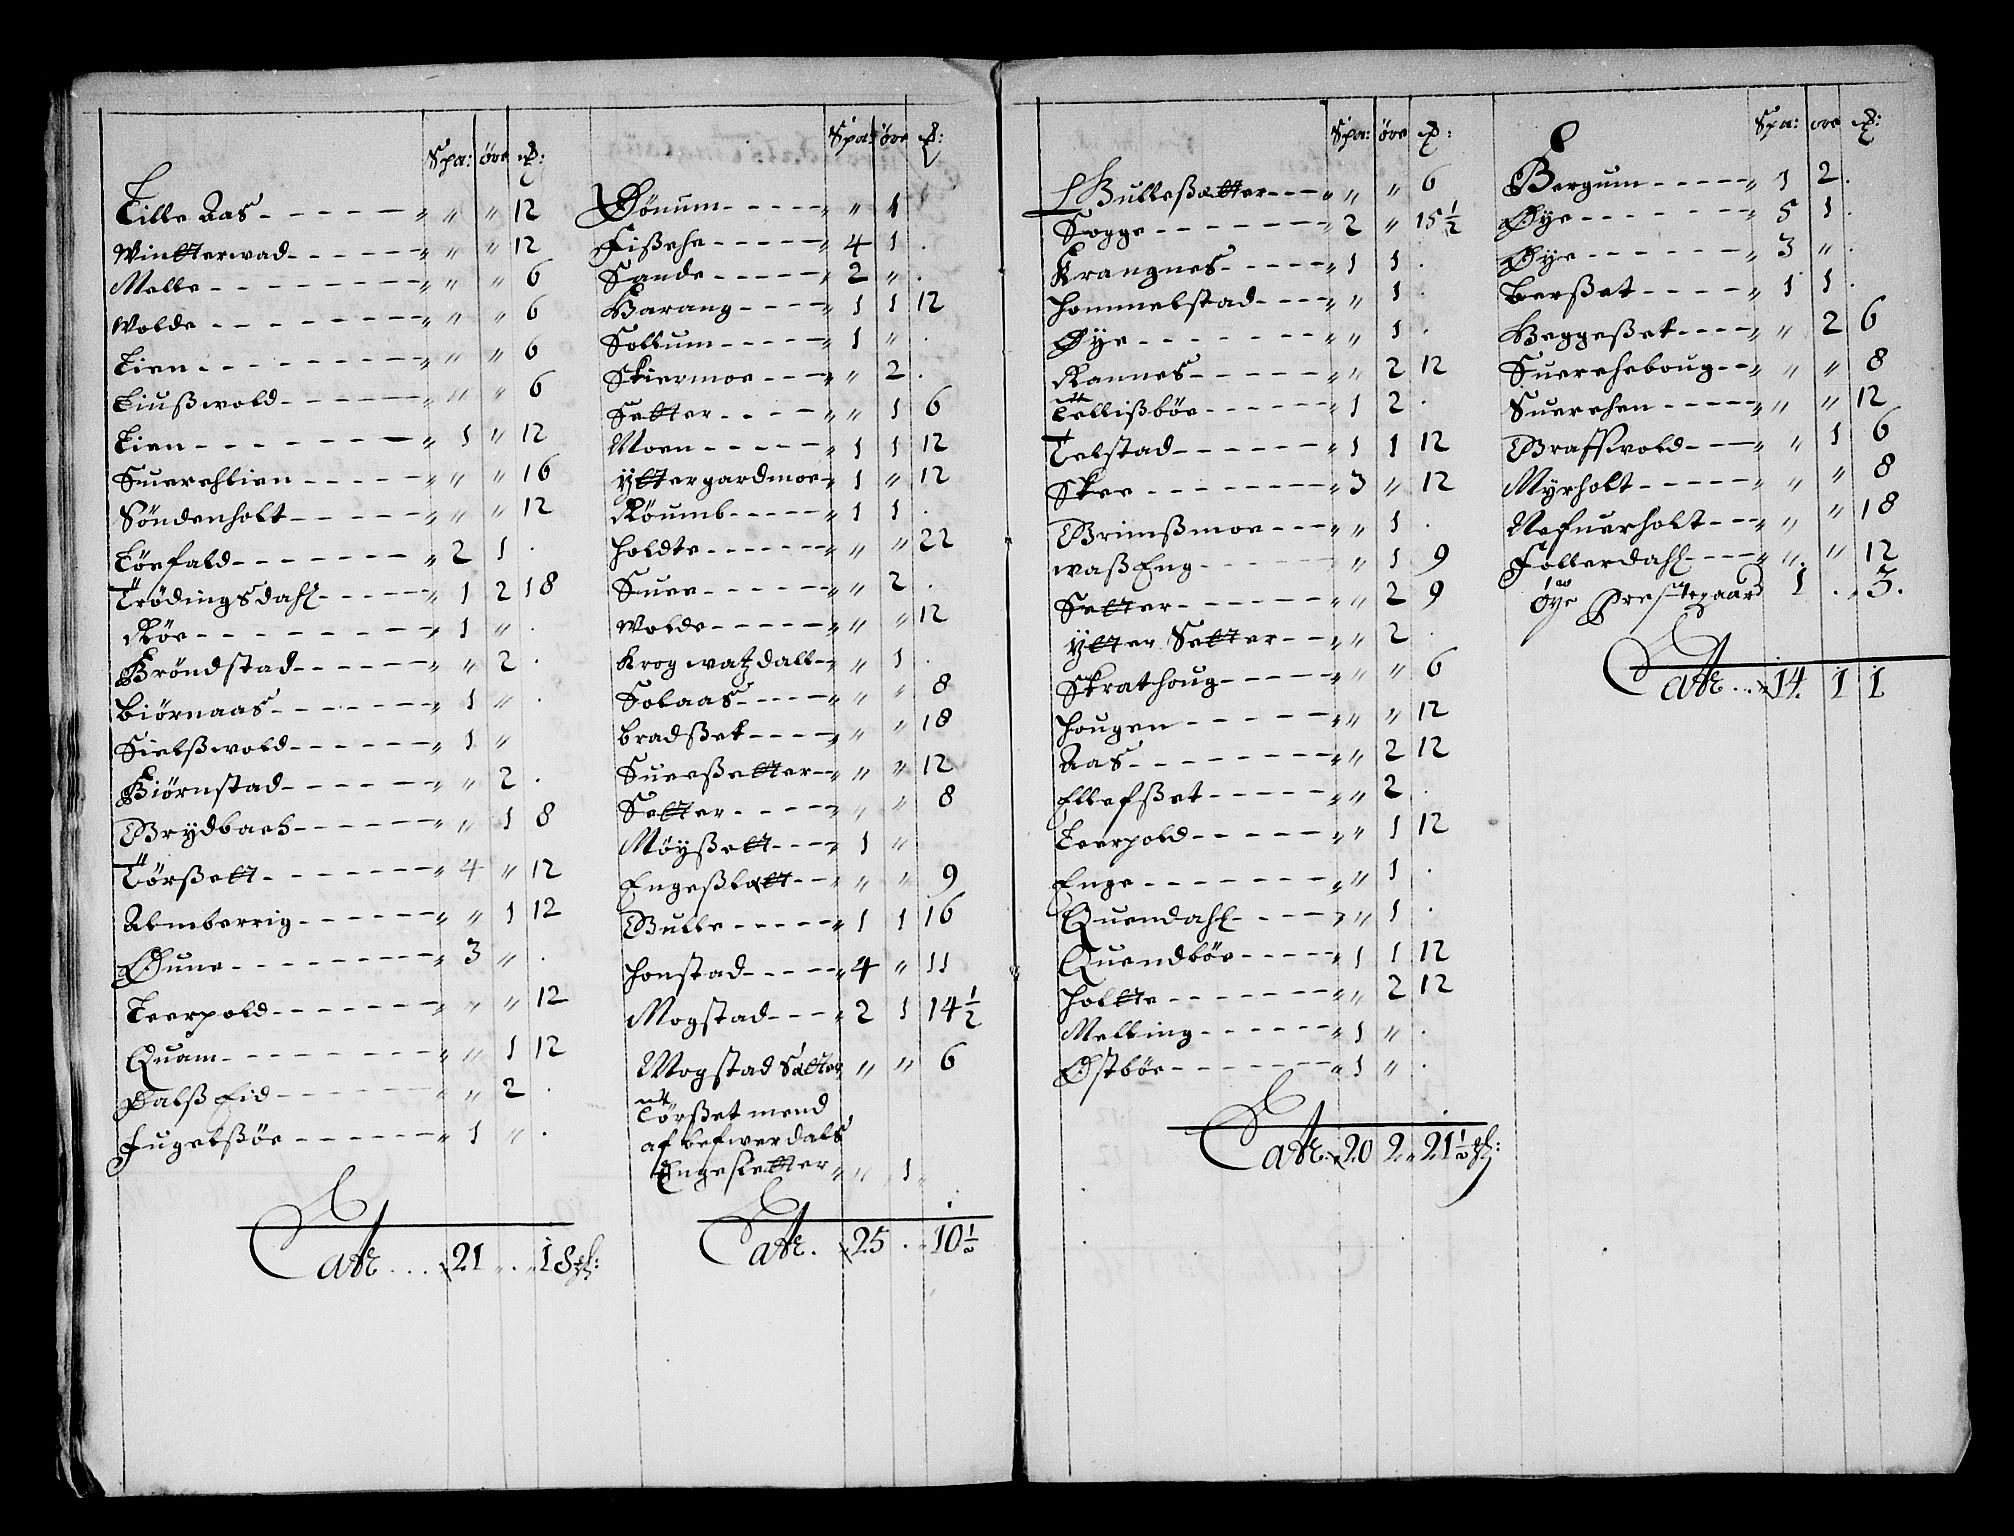 Spa: öre
Lille Aas - - - - - - „ „ „ 12
Wintterwad - - - - - „ „ „ 12
Melle - - - - - - - - „ „ „ 6
Wolde - - - - - - - - „ „ „ 6
Lien - - - - - - - - „ „ „ 6
Liußwold - - - - - - „ „ „ 6
Lien - - - - - - - - „ 1 „ 12
Suerchlien - - - - - „ „ „ 16
Söndenholt - - - - - „ „ „ 12
Töefald - - - - - - - „ 2 1 .
Trödingsdahl - - - - - „ 1 2 18
Röe - - - - - - - - „ 1 „ .
Gröndstad - - - - - - „ „ 2 .
Biörnaas - - - - - - „ 1 „ .
Sielßwold - - - - - - „ 1 „
Biörnstad - - - - - - „ „ 2 .
Brydbach - - - - - - „ „ 1 8
Törßett - - - - - - - „ 4 „ 12
Almberrig - - - - - - „ „ 1 12
Øune - - - - - - - - „ 3 „ .
Leerpold - - - - - - „ „ „ 12
Quam - - - - - - - - „ „ 1 12
Dalß Eid - - - - - - „ „ 2 .
Fugelßöe - - - - - - „ 1 „ .
Latr. . . . 21 . . 18
Spa: öre
Dönum - - - - - „ „ 1
Fißche - - - - - „ 4 1 .
Sande - - - - - „ 2 „ .
Garang - - - - „ 1 1 12
Sollum - - - - - „ 1 „ .
Skiermoe - - - „ „ 2 .
Setter - - - - „ „ 1 6
Moen - - - - - „ 1 1 12
Yttergardmoe - „ 1 „ 12
Röumb - - - - - „ 1 1 .
Holdte - - - - - - „ „ „ 22
Suee - - - - - - „ „ 2 .
Wolde - - - - - - „ „ „ 12
Krog watz dall - „ „ 1 .
Solaas - - - - - „ „ „ 8
Bradßet - - - - „ „ „ 18
Sueeßetter - - „ „ „ 12
Setter - - - - - „ „ „ 8
Möyßett - - - „ 1 „
Engeßlett - - „ „ „ 9
Gulle - - - - - „ 1 1 16
Honstad - - - - - „ 4 „ 11
Mogstad - - - „ 2 1 14 1/2
Mogstad Setter „ „ 6
nk
Törßet mend
af Lefwerdals
Engesietter „ „ 1 „
Latr. 25 . „ 10 1/2
Spa: öre
Gulleßetter - - - „ „ „ 6
Sogge - - - - - - - „ 2 „ 15 1/2
Krangnes - - - - - „ 1 1 .
Hommelstad - - - - „ „ 1 .
Øye - - - - - - - - „ „ 1 .
Rannes - - - - - - „ „ 2 12
Tellißböe - - - - - - „ 1 2 .
Telstad - - - - - - „ 1 1 12
Skee - - - - - - - - „ 3 „ 12
Grimßmoe - - - „ „ 1 .
Waß Eng - - - - - - „ 1 9
Setter - - - - - - „ „ 2 9
Ytter Setter - - „ „ 2 .
Skrathoug - - - - - „ „ „ 6
Hougen - - - - - - „ „ „ 12
Aas - - - - - - - - „ „ 2 12
Ellefßet - - - - - „ „ 2 .
Leerpold - - - - - - „ „ 1 12
Enge - - - - - - - - „ „ 1 .
Quendahl - - - - „ „ 1 .
Quendböe - - - - - „ 1 1 12
Holtte - - - - - - - „ „ 2 12
Melling - - - - - - „ 1 „ .
Östböe - - - - - - - „ 1 „ .
Latr. 20 2 „ 21 1/2
Spa: öre
Bergum - - - - - „ 1 2 .
Øye - - - - - - - „ 5 1 .
Øye - - - - - - - „ 3 „ .
Berßet - - - - „ 1 1 .
Geggeßet - - - - „ „ 2 6
Suerchehoug - - „ „ „ 8
Suerchen - - - - - „ „ „ 12
Graffwold - - - „ „ 1 6
Myrholt - - - - - „ „ „ 8
Nefuerholt - - - „ „ „ 18
Follerdahl - - - - „ „ „ 12
Öye Prestegaard 1 . „ 3.
Latr. . . 14 1 1